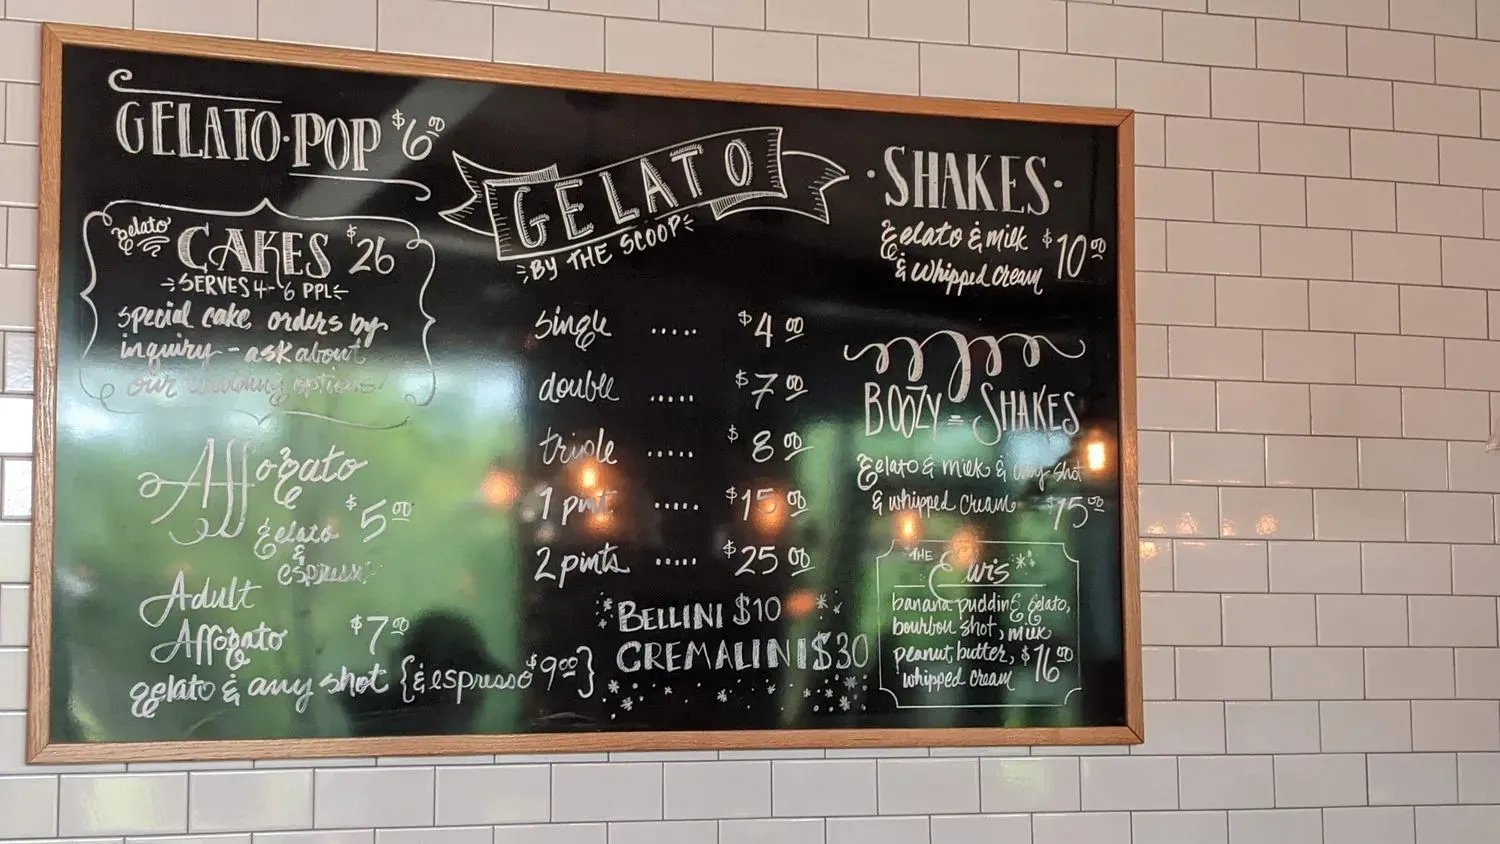 GELATO·POP $6.00
gelato CAKES $26
SERVES 4-6 PPL
special cake orders by
inquiry - ask about
our wedding options!
Affogato $5.00
gelato
&
espresso
Adult
Affogato $7.00
gelato & any shot {& espresso $9.00}
GELATO
BY THE SCOOP
single ..... $4.00
double ..... $7.00
triple ..... $8.00
1 pint ..... $15.00
2 pints ..... $25.00
BELLINI $10
CREMALINI $30
·SHAKES·
gelato & milk $10.00
& whipped cream
BOOZY = SHAKES
gelato & milk & any shot
& whipped cream $15.00
THE Elvis
banana pudding gelato,
bourbon shot, milk
peanut butter, $16.00
whipped cream